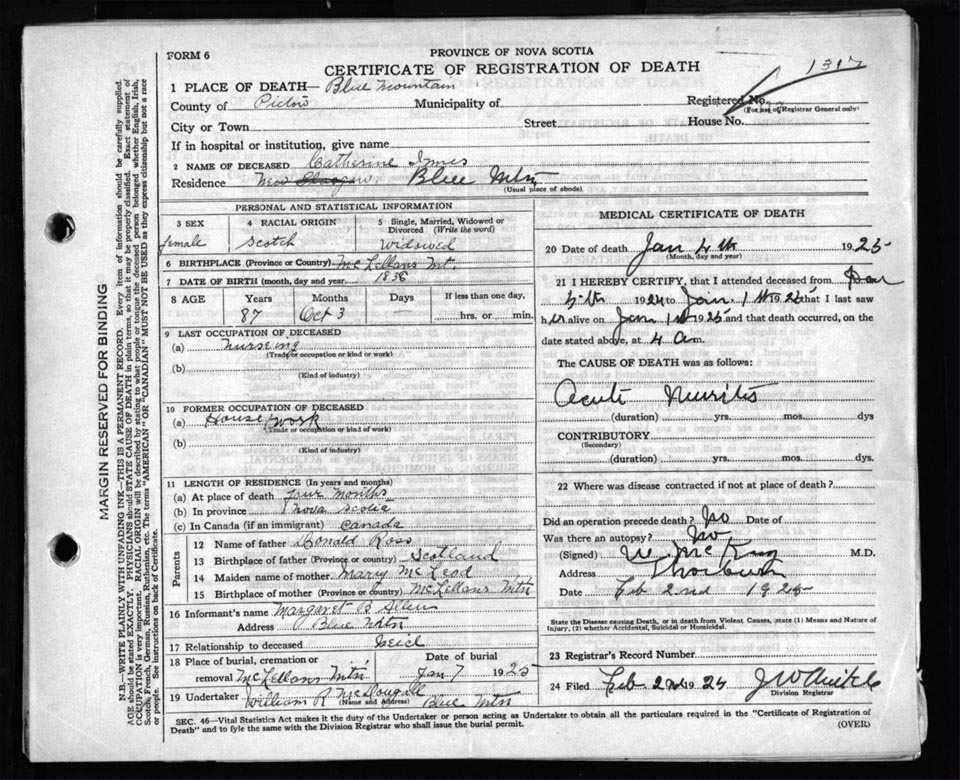 FORM 6
PROVINCE OF NOVA SCOTIA
CERTIFICATE OF REGISTRATION OF DEATH
1317
1 PLACE OF DEATH— Blue Mountain
County of Pictou Municipality of Registered No.
(For use of Registrar General only)
City or Town Street House No.
If in hospital or institution, give name
2 NAME OF DECEASED Catherine Innes
Residence New Glasgow Blue Mtn
(Usual place of abode)
PERSONAL AND STATISTICAL INFORMATION
3 SEX 4 RACIAL ORIGIN 5 Single, Married, Widowed or Divorced (Write the word)
female Scotch Widowed
6 BIRTHPLACE (Province or Country) McLellans Mt.
7 DATE OF BIRTH (month, day and year) 1838
8 AGE Years Months Days If less than one day,
87 Oct 3 — hrs. or min.
9 LAST OCCUPATION OF DECEASED
(a) Nurseing
(Trade or occupation or kind or work)
(b)
(Kind of industry)
10 FORMER OCCUPATION OF DECEASED
(a) House work
(Trade or occupation or kind of work)
(b)
(Kind of industry)
11 LENGTH OF RESIDENCE (In years and months)
(a) At place of death four months
(b) In province Nova Scotia
(c) In Canada (if an immigrant) Canada
Parents
12 Name of father Donald Ross
13 Birthplace of father (Province or country) Scotland
14 Maiden name of mother Mary McLeod
15 Birthplace of mother (Province or country) McLellans Mtn
16 Informant's name Margaret B
Address Blue Mtn
17 Relationship to deceased
18 Place of burial, cremation or removal McLellans Mtn Date of burial Jan 7 1925
19 Undertaker William R McDougall Blue Mtn
(Name and Address)
MEDICAL CERTIFICATE OF DEATH
20 Date of death Jan 4th 1925
(Month, day and year)
21 I HEREBY CERTIFY, that I attended deceased from
1924 to Jan 1st 1925 that I last saw
her alive on Jan 1st 1925 and that death occurred, on the
date stated above, at 4 am.
The CAUSE OF DEATH was as follows:
Acute Neuritis
(duration) yrs. mos. dys
CONTRIBUTORY
(Secondary)
(duration) yrs. mos. dys.
22 Where was disease contracted if not at place of death?
Did an operation precede death? No Date of
Was there an autopsy? No
(Signed) M.D.
Address Thorburn
Date Feb 2nd 1925
State the Disease causing Death, or in death from Violent Causes, state (1) Means and Nature of
Injury, (2) whether Accidental, Suicidal or Homicidal.
23 Registrar's Record Number
24 Filed Feb 2nd 1925
Division Registrar
SEC. 46—Vital Statistics Act makes it the duty of the Undertaker or person acting as Undertaker to obtain all the particulars required in the "Certificate of Registration of
Death" and to fyle the same with the Division Registrar who shall issue the burial permit. (OVER)
MARGIN RESERVED FOR BINDING
N.B.—WRITE PLAINLY WITH UNFADING INK—THIS IS A PERMANENT RECORD. Every item of information should be carefully supplied.
AGE should be stated EXACTLY. PHYSICIANS should STATE CAUSE OF DEATH in plain terms, so that it may be properly classified. Exact statement of
OCCUPATION is very important. RACIAL ORIGIN will be described by stating to what people or tongue the deceased person belonged whether English, Irish,
Scotch, French, German, Russian, Ruthenian, etc. The terms "AMERICAN" OR "CANADIAN" MUST NOT BE USED as they express citizenship but not a race
or people. See instructions on back of Certificate.